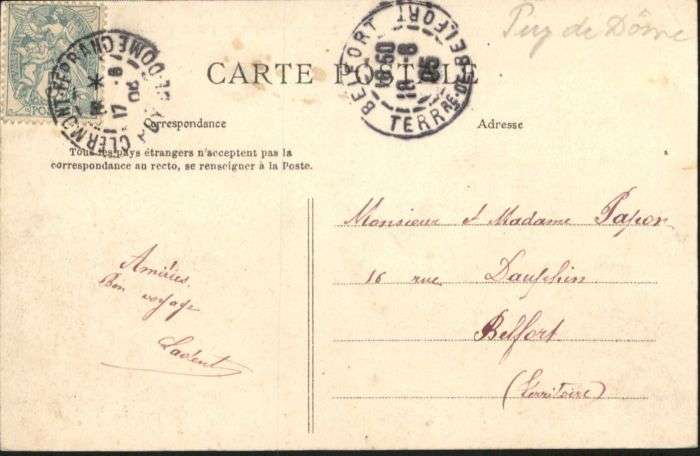 Puy de Dôme
CARTE POSTALE
CLERMONT-FERRAND
17 -8
05
PUY-DE-DOME
BELFORT BELFORT
18 50
18 -8
05
TERRRE DE BELFORT
Correspondance
Adresse
Tous les pays étrangers n'acceptent pas la
correspondance au recto, se renseigner à la Poste.
Monsieur et Madame Papon
16 rue Dauphin
Belfort
(Territoire)
Amitiés
Bon voyage